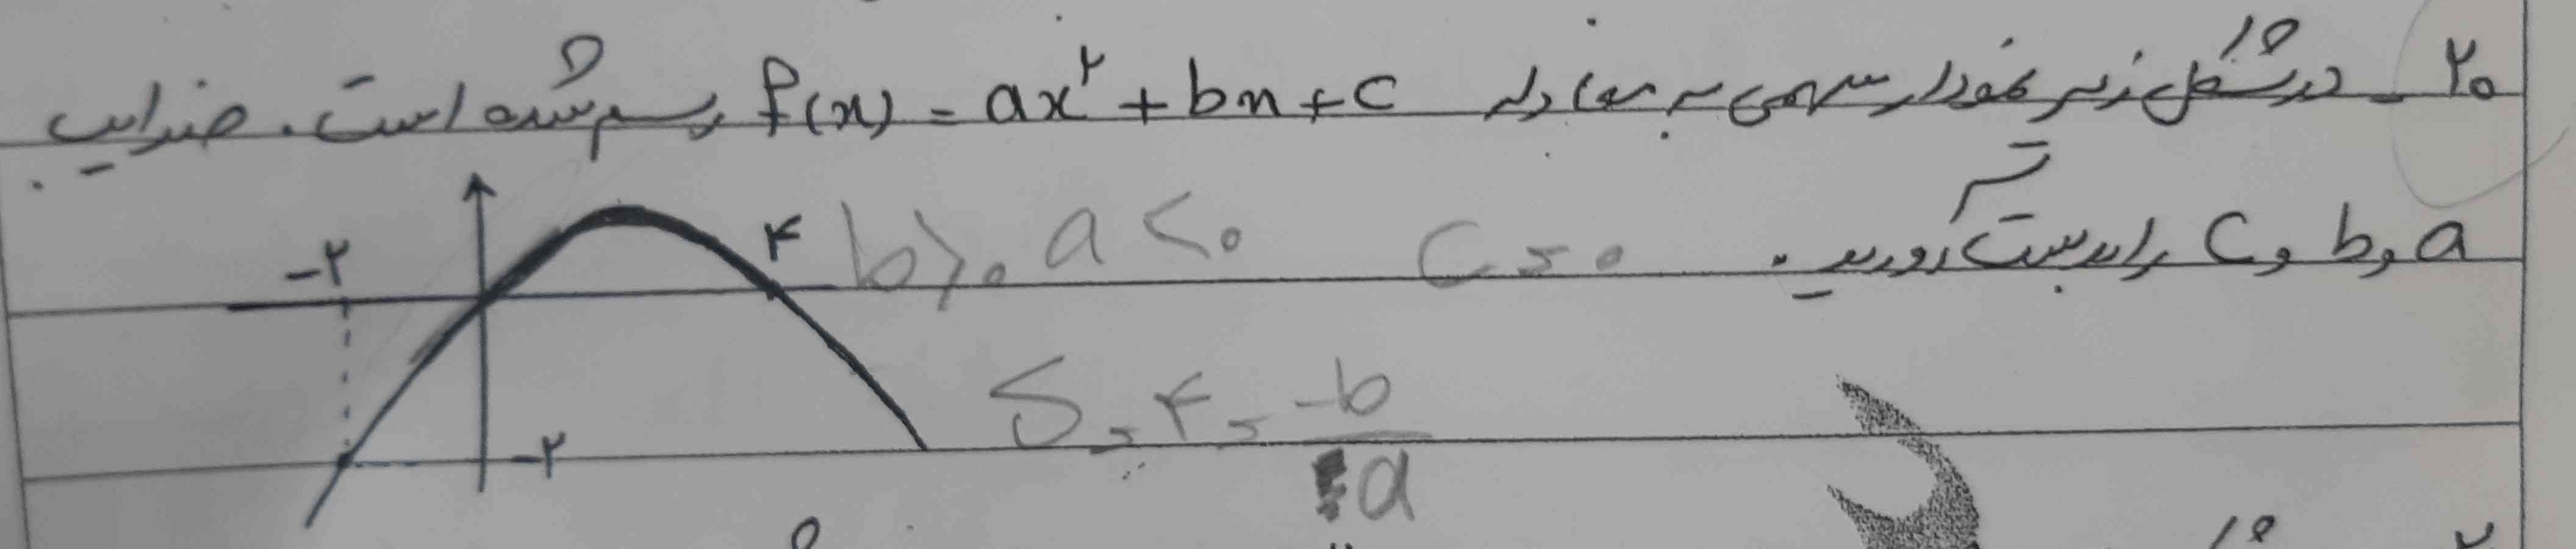 ۲۰ـ در شکل زیر نمودار سهمی به معادله f(x) = ax² + bx + c رسم شده است. ضرایب
a و b و c را بدست آورید.
b>۰ a<۰ c=۰
-۲ ۴
S = ۴ = -b/a
-۲